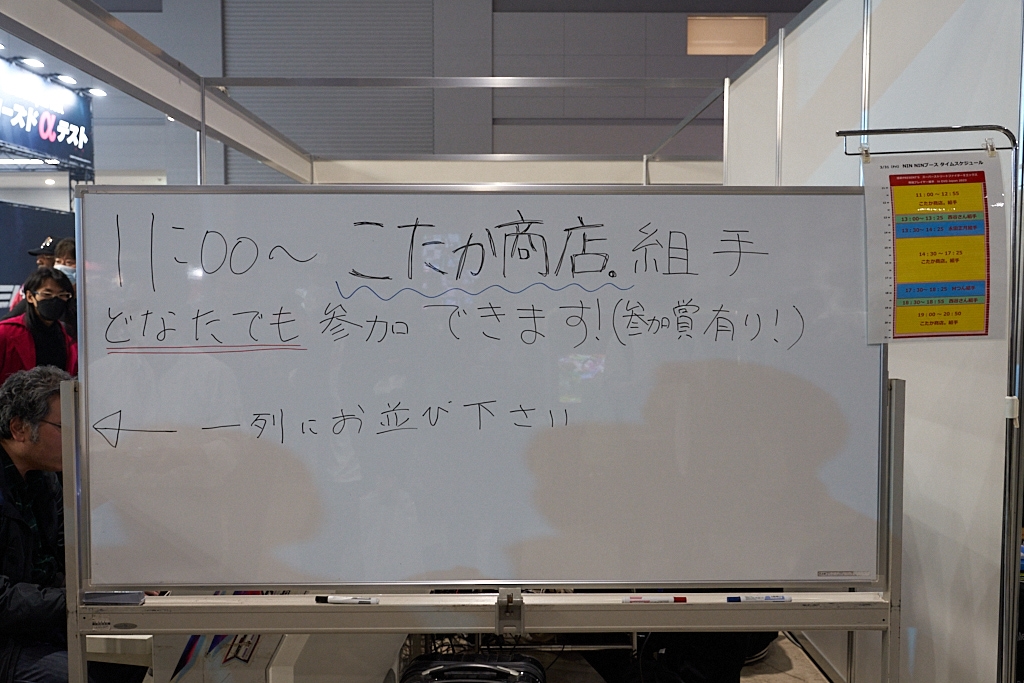 11:00～ こたか商店。組手
どなたでも参加できます!(参加賞有り!)
← 一列にお並び下さい
ースドαテスト
NIN NINブース タイムスケジュール
11:00～12:55
こたか商店。組手
13:00～13:25
13:30～14:25
14:30～17:25
こたか商店。組手
17:30～18:25
18:30～18:55
19:00～20:50
こたか商店。組手